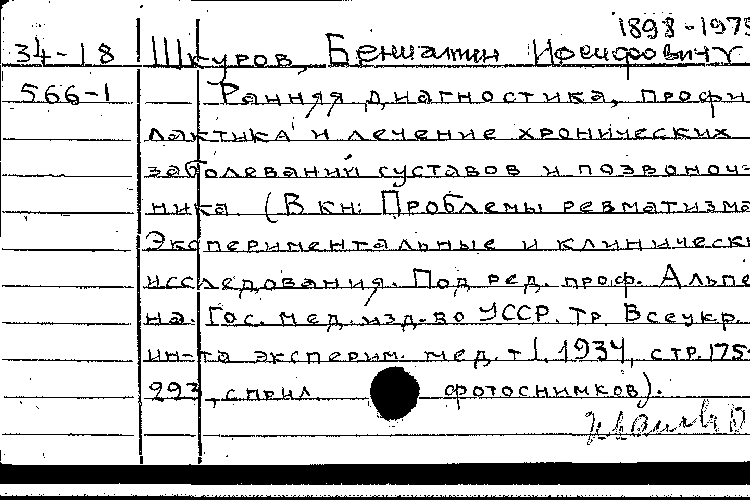 1898-1975
34-18 Шкуров, Бениамин Иосифович
566-1 Ранняя диагностика, профи
лактика и лечение хронических
заболеваний суставов и позвоноч-
ника. (В кн: Проблемы ревматизма
Экспериментальные и клинически
исследования. Под ред. проф. Альпе
на. Гос. мед. изд-во УССР. Тр. Всеукр.
ин-та эксперим. мед. т I. 1934, стр. 175-
293, с прил. фотоснимков).